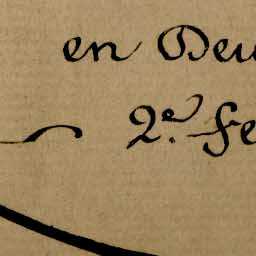 en Deu
2.e Fe